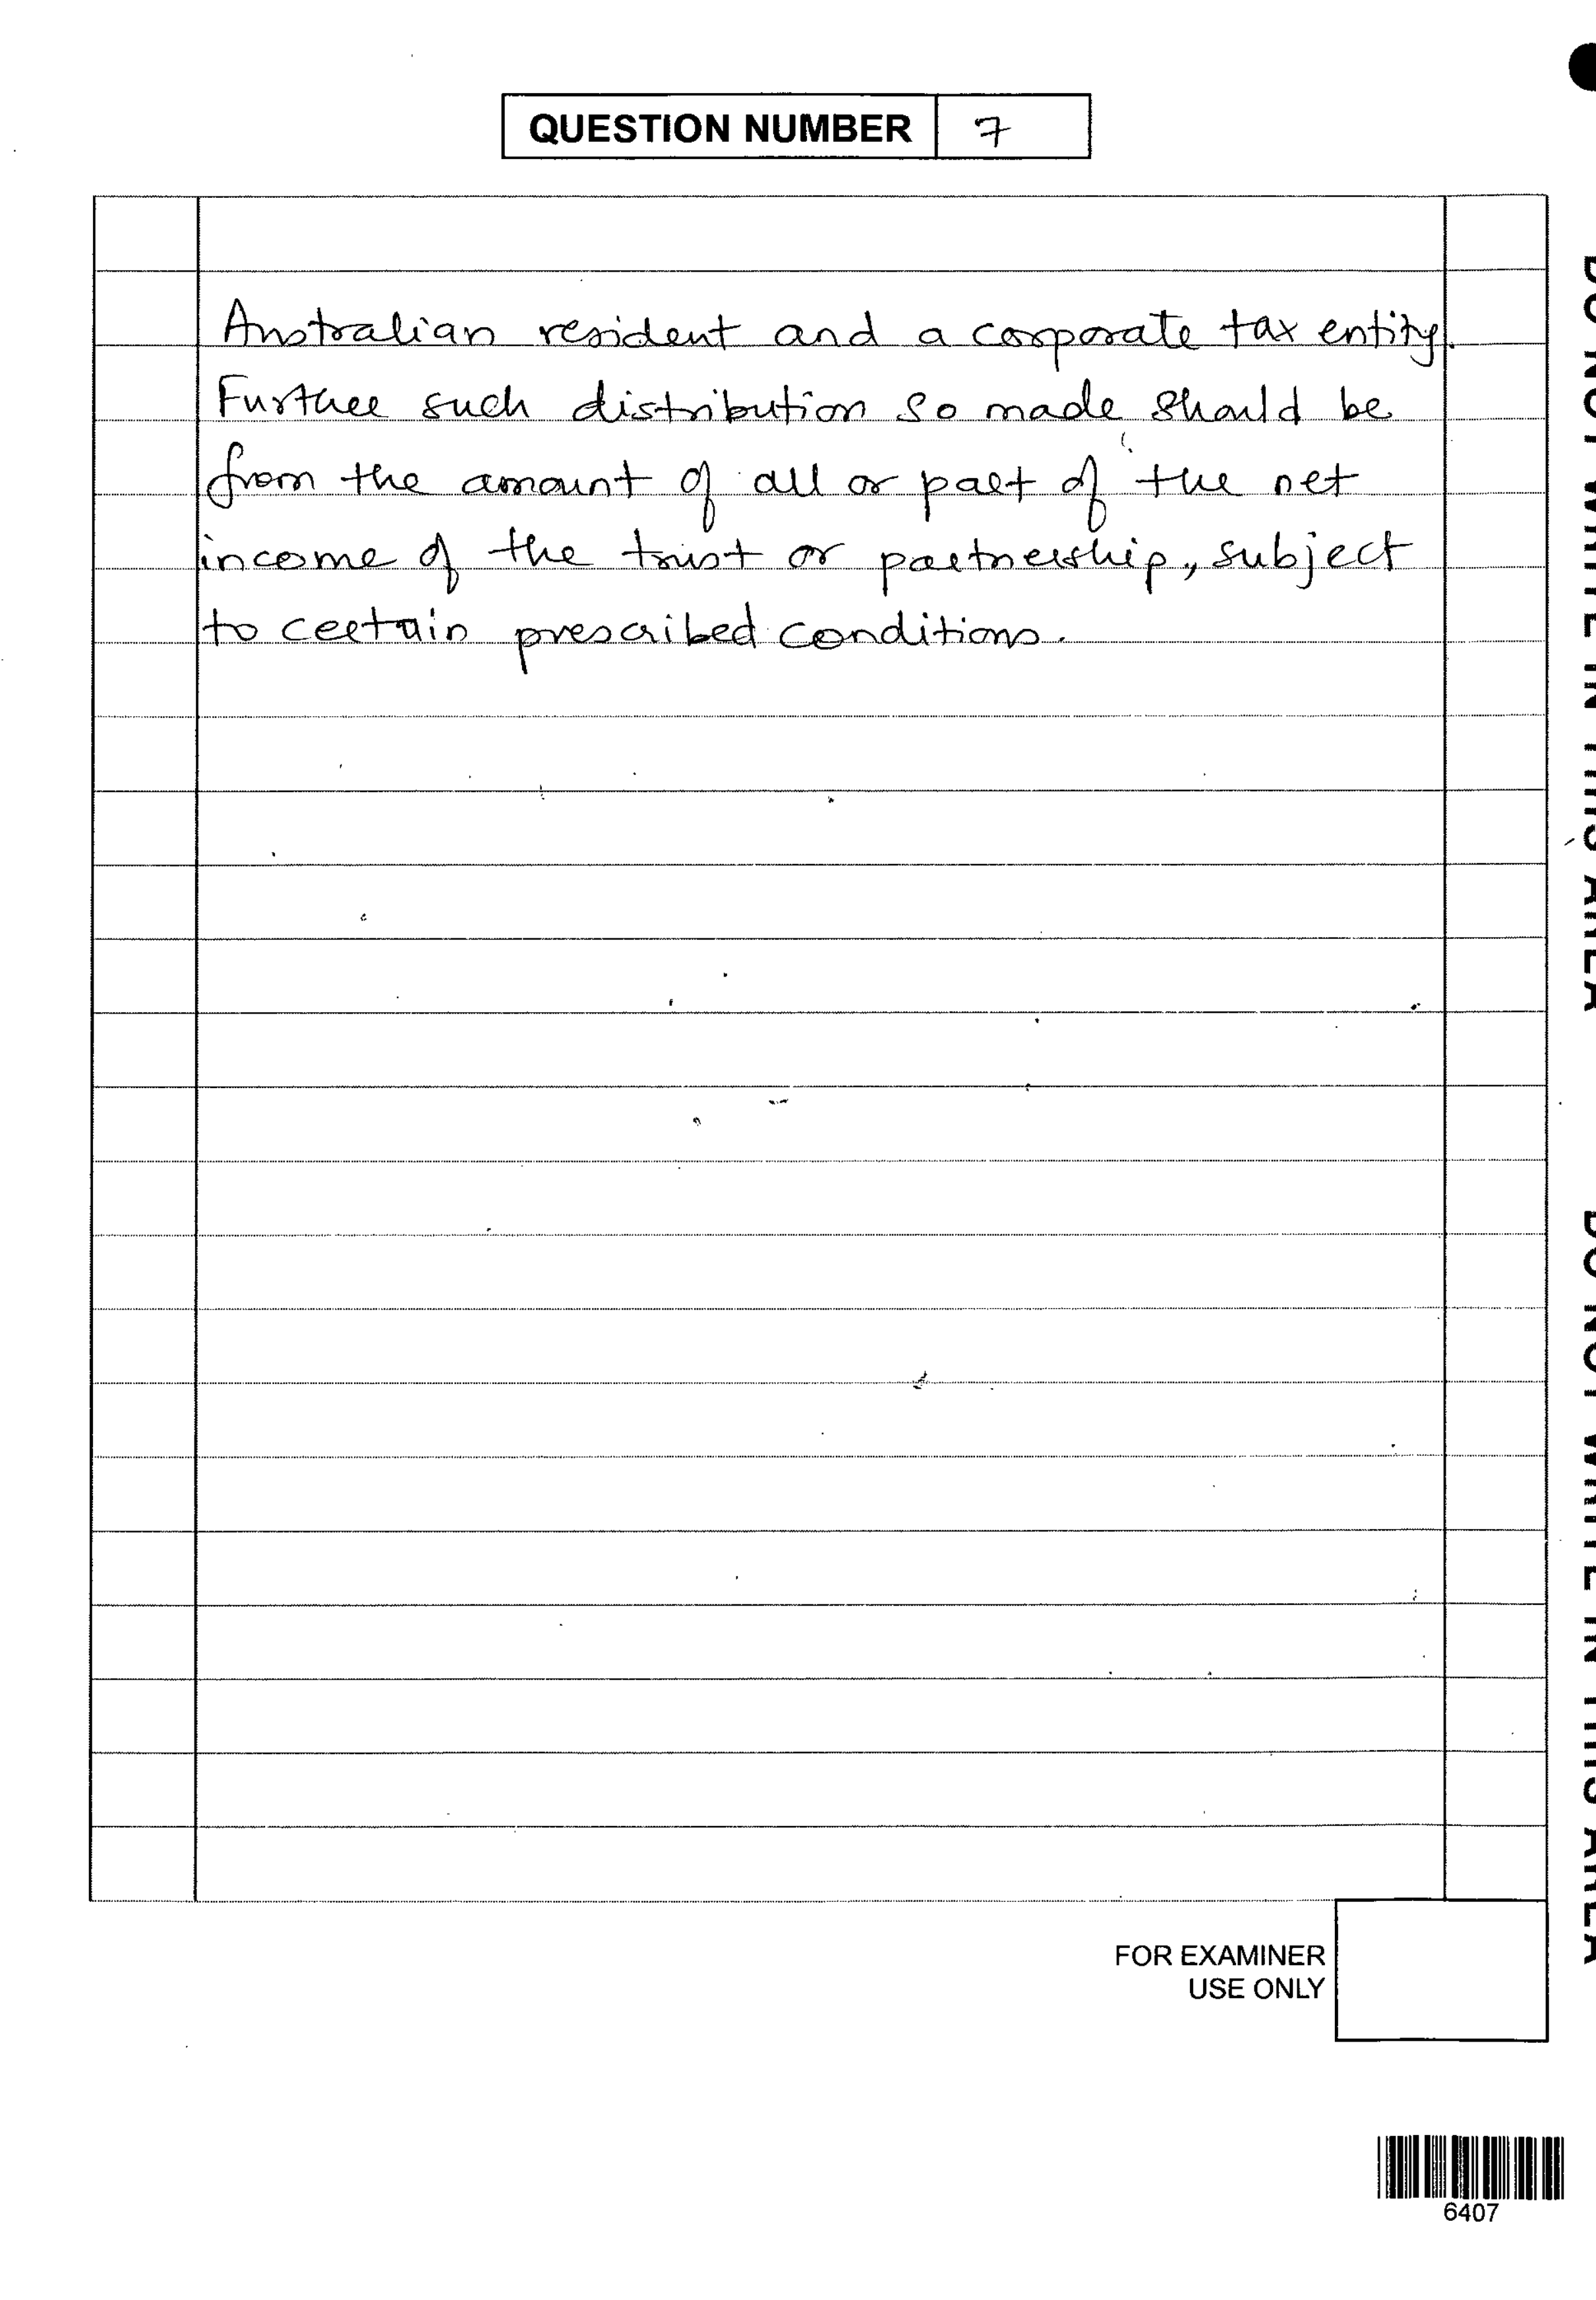 QUESTION NUMBER 7
Australian resident and a corporate tax entity.
Further such distribution so made should be
from the amount of all or part of the net
income of the trust or partnership, subject
to certain prescribed conditions.
FOR EXAMINER
USE ONLY
6407
DO NOT WRITE IN THIS AREA
DO NOT WRITE IN THIS AREA